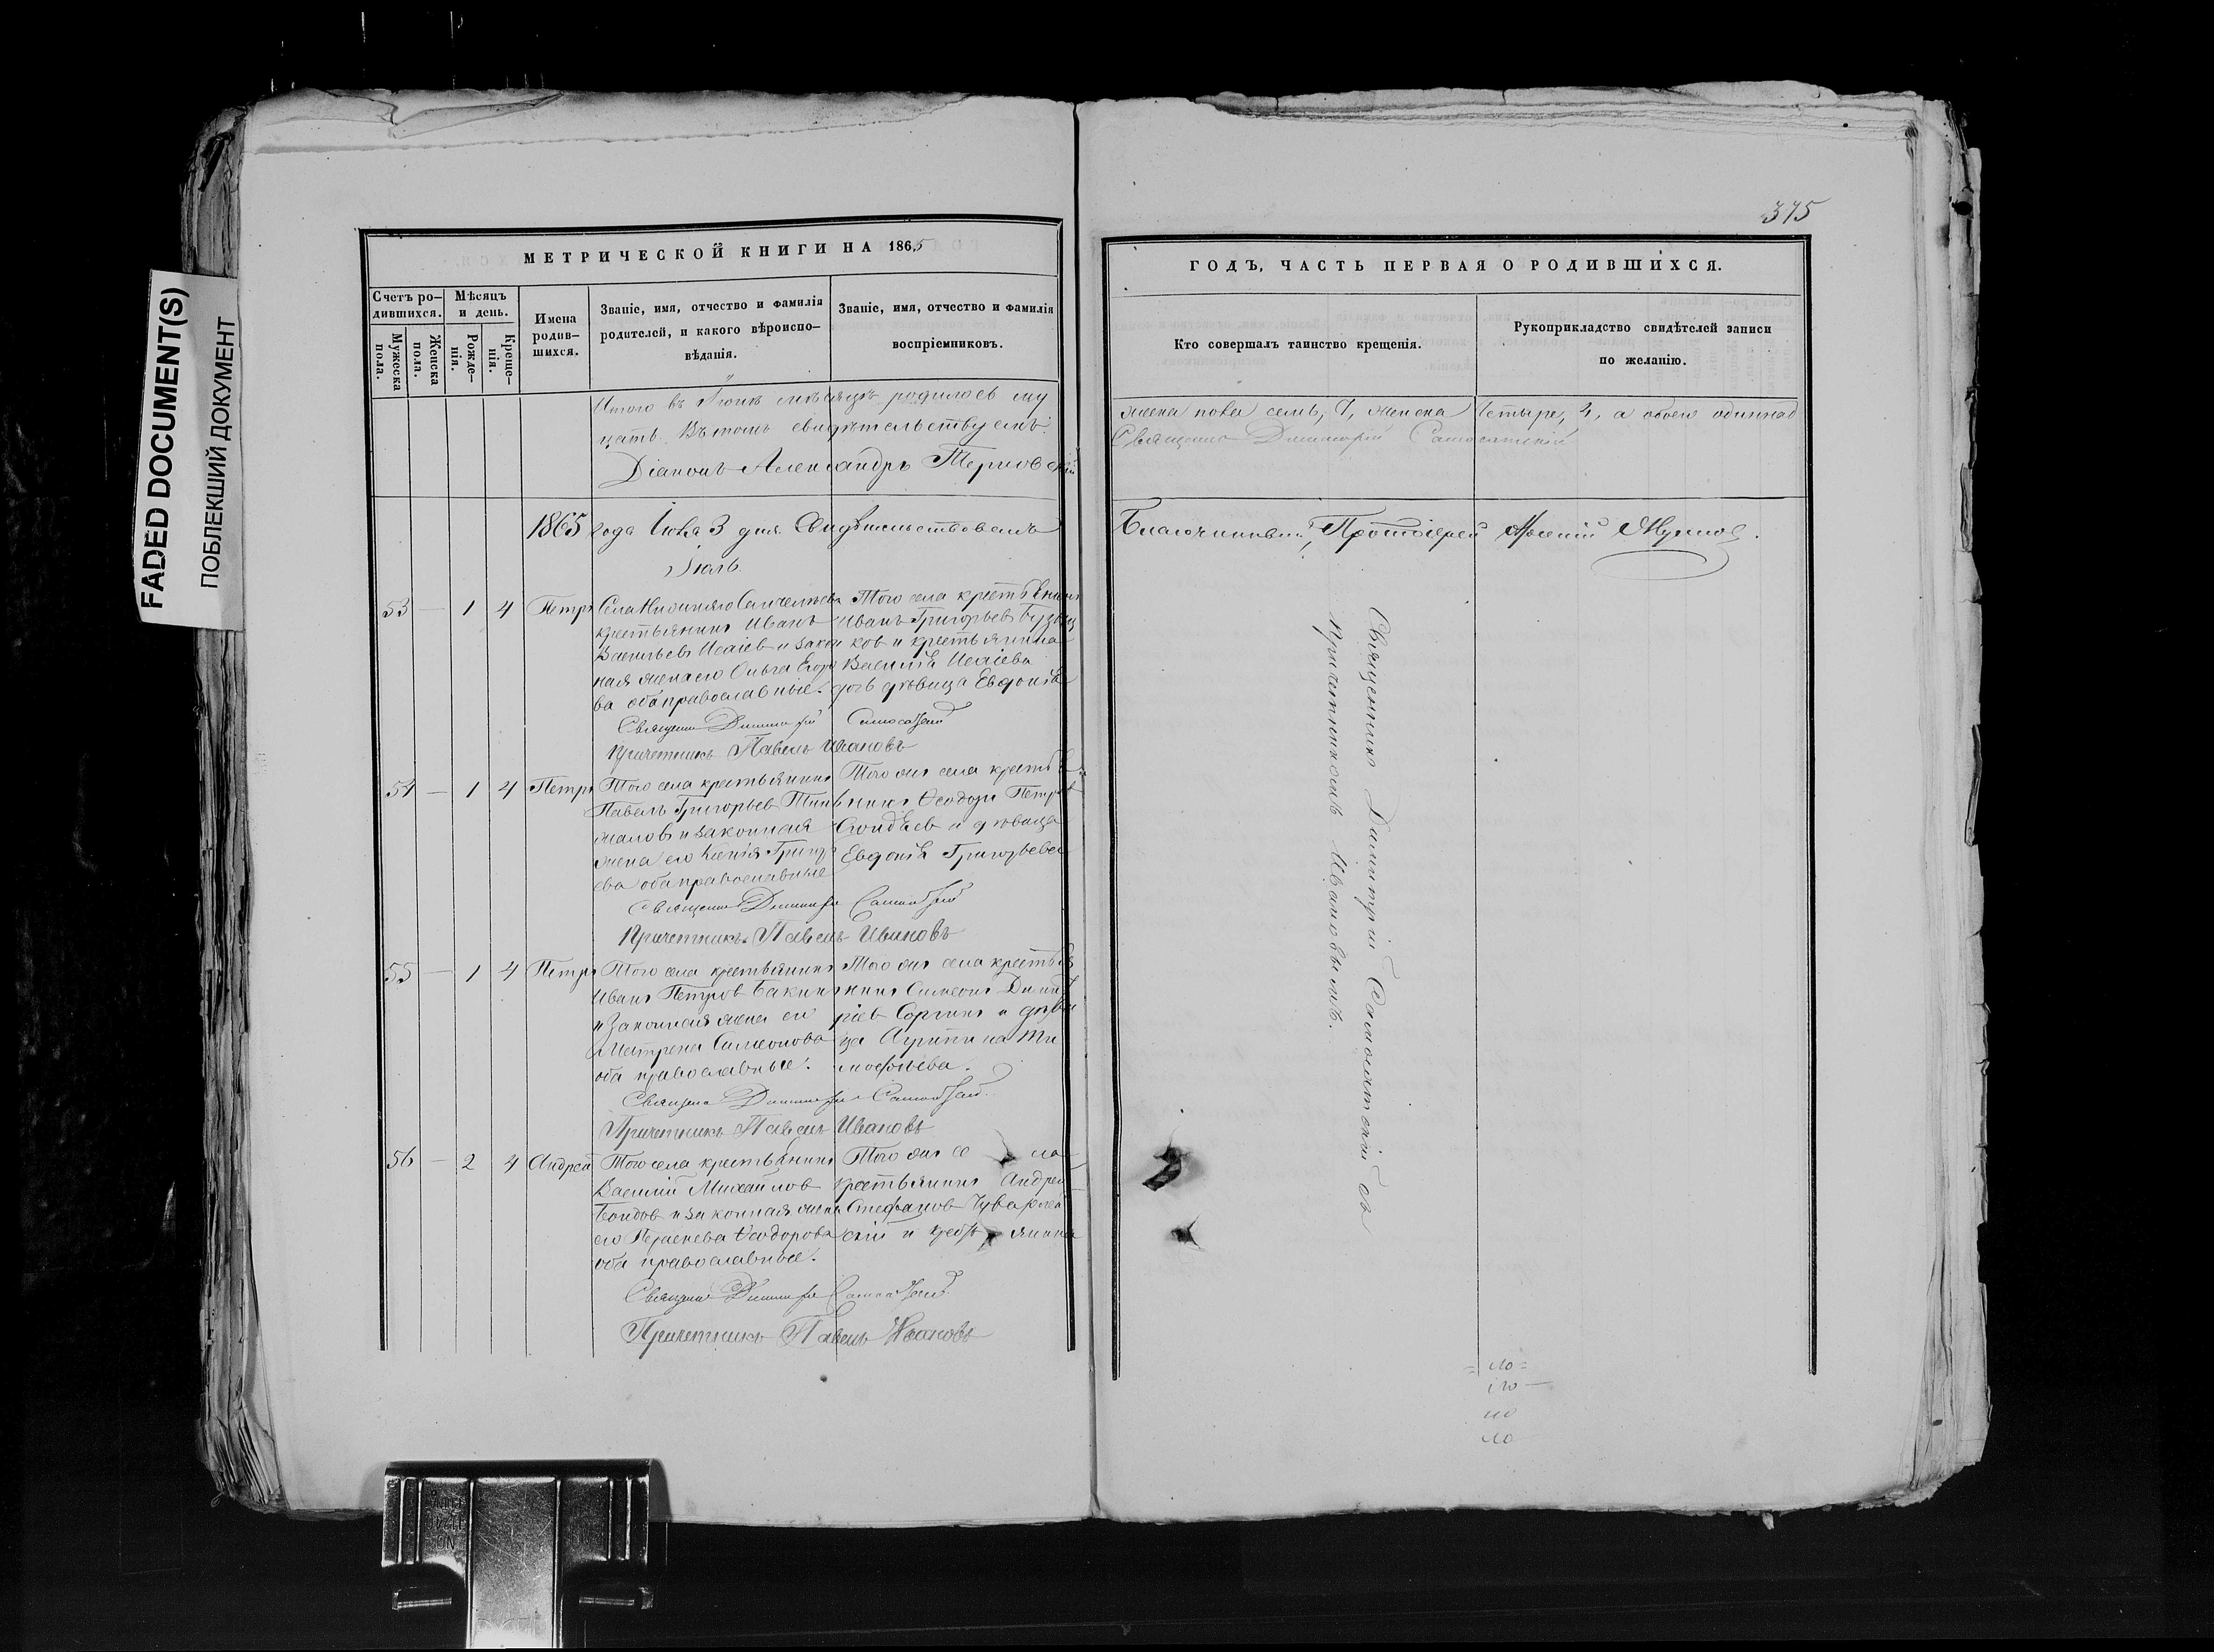 375
FADED DOCUMENT(S)
ПОБЛЕКШИЙ ДОКУМЕНТ
МЕТРИЧЕСКОЙ КНИГИ НА 1865
Счетъ родившихся.
Мужеска пола.
Женска пола.
Мѣсяцъ и день.
Рожденія.
Крещенія.
Имена родившихся.
Званіе, имя, отчество и фамилія
родителей, и какого вѣроисповѣданія.
Званіе, имя, отчество и фамилія
воспріемниковъ.
ГОДЪ, ЧАСТЬ ПЕРВАЯ О РОДИВШИХСЯ.
Кто совершалъ таинство крещенія.
Рукоприкладство свидѣтелей записи
по желанію.
Итого въ Іюнѣ мѣсяцѣ родилось му
жеска пола семь, 7, женска четыре, 4, а обоего одиннад
цать. Въ томъ свидѣтельствуемъ:
Священникъ Димитрій Самосатскій
Діаконъ Александръ Терновскій
1865 года Іюля 3 дня Свидѣтельствовалъ
Благочинный, Протоіерей
Іюль.
53 — 1 4 Петръ
Села
крестьянинъ Иванъ
Васильевъ Исаіевъ и закон
ная жена его Ольга Егоро
ва оба православные.
Того села крестьянинъ
Иванъ Григорьевъ
ковъ и крестьянина
Василія Исаіева
дочь дѣвица Евдокія
Священникъ Димитрій Самосатскій
Причетникъ Павелъ Ивановъ
54 — 1 4 Петръ
Того села крестьянинъ
Павелъ Григорьевъ
и законная
жена его Ксенія Григорь
ева оба православные
Того же села крестья
нинъ Ѳеодоръ Петровъ
и дѣвица
Евдокія Григорьева
Священникъ Димитрій Самосатскій
Причетникъ Павелъ Ивановъ
55 — 1 4 Петръ
Того села крестьянинъ
Иванъ Петровъ Бакинъ
и законная жена его
Матрена Симеонова
оба православные.
Того же села крестья
нинъ Симеонъ Димит
ріевъ Соргинъ и дѣви
ца Агрипина Ти
моѳеева.
Священникъ Димитрій Самосатскій
Причетникъ Павелъ Ивановъ
56 — 2 4 Андрей
Того села крестьянинъ
Василій Михайловъ
и законная жена
его Параскева Ѳеодорова
оба православные.
Того же села
крестьянинъ Андрей
Стефановъ Чуварлей
скій и крестьянина
Священникъ Димитрій Самосатскій
Причетникъ Павелъ Ивановъ
Священникъ Димитрій Самосатскій съ
причетникомъ Ивановымъ.